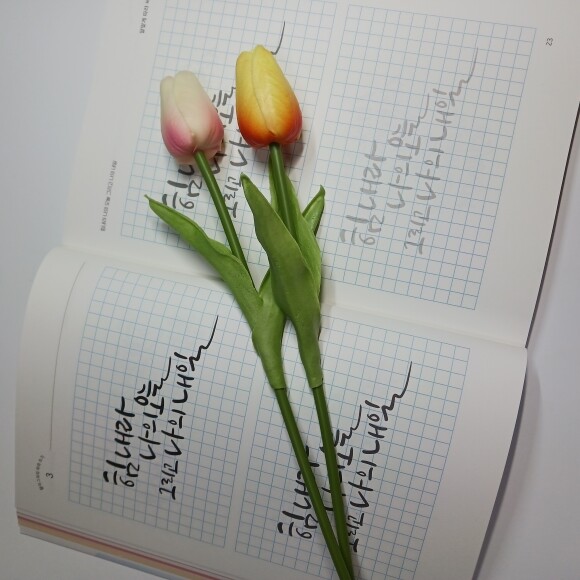 힘내라
나의 오늘
그리고 나의 내일
힘내라
나의 오늘
그리고 나의 내일
힘내라
나의 오늘
그리고 나의 내일
힘내라
나의 오늘
그리고 나의 내일
3